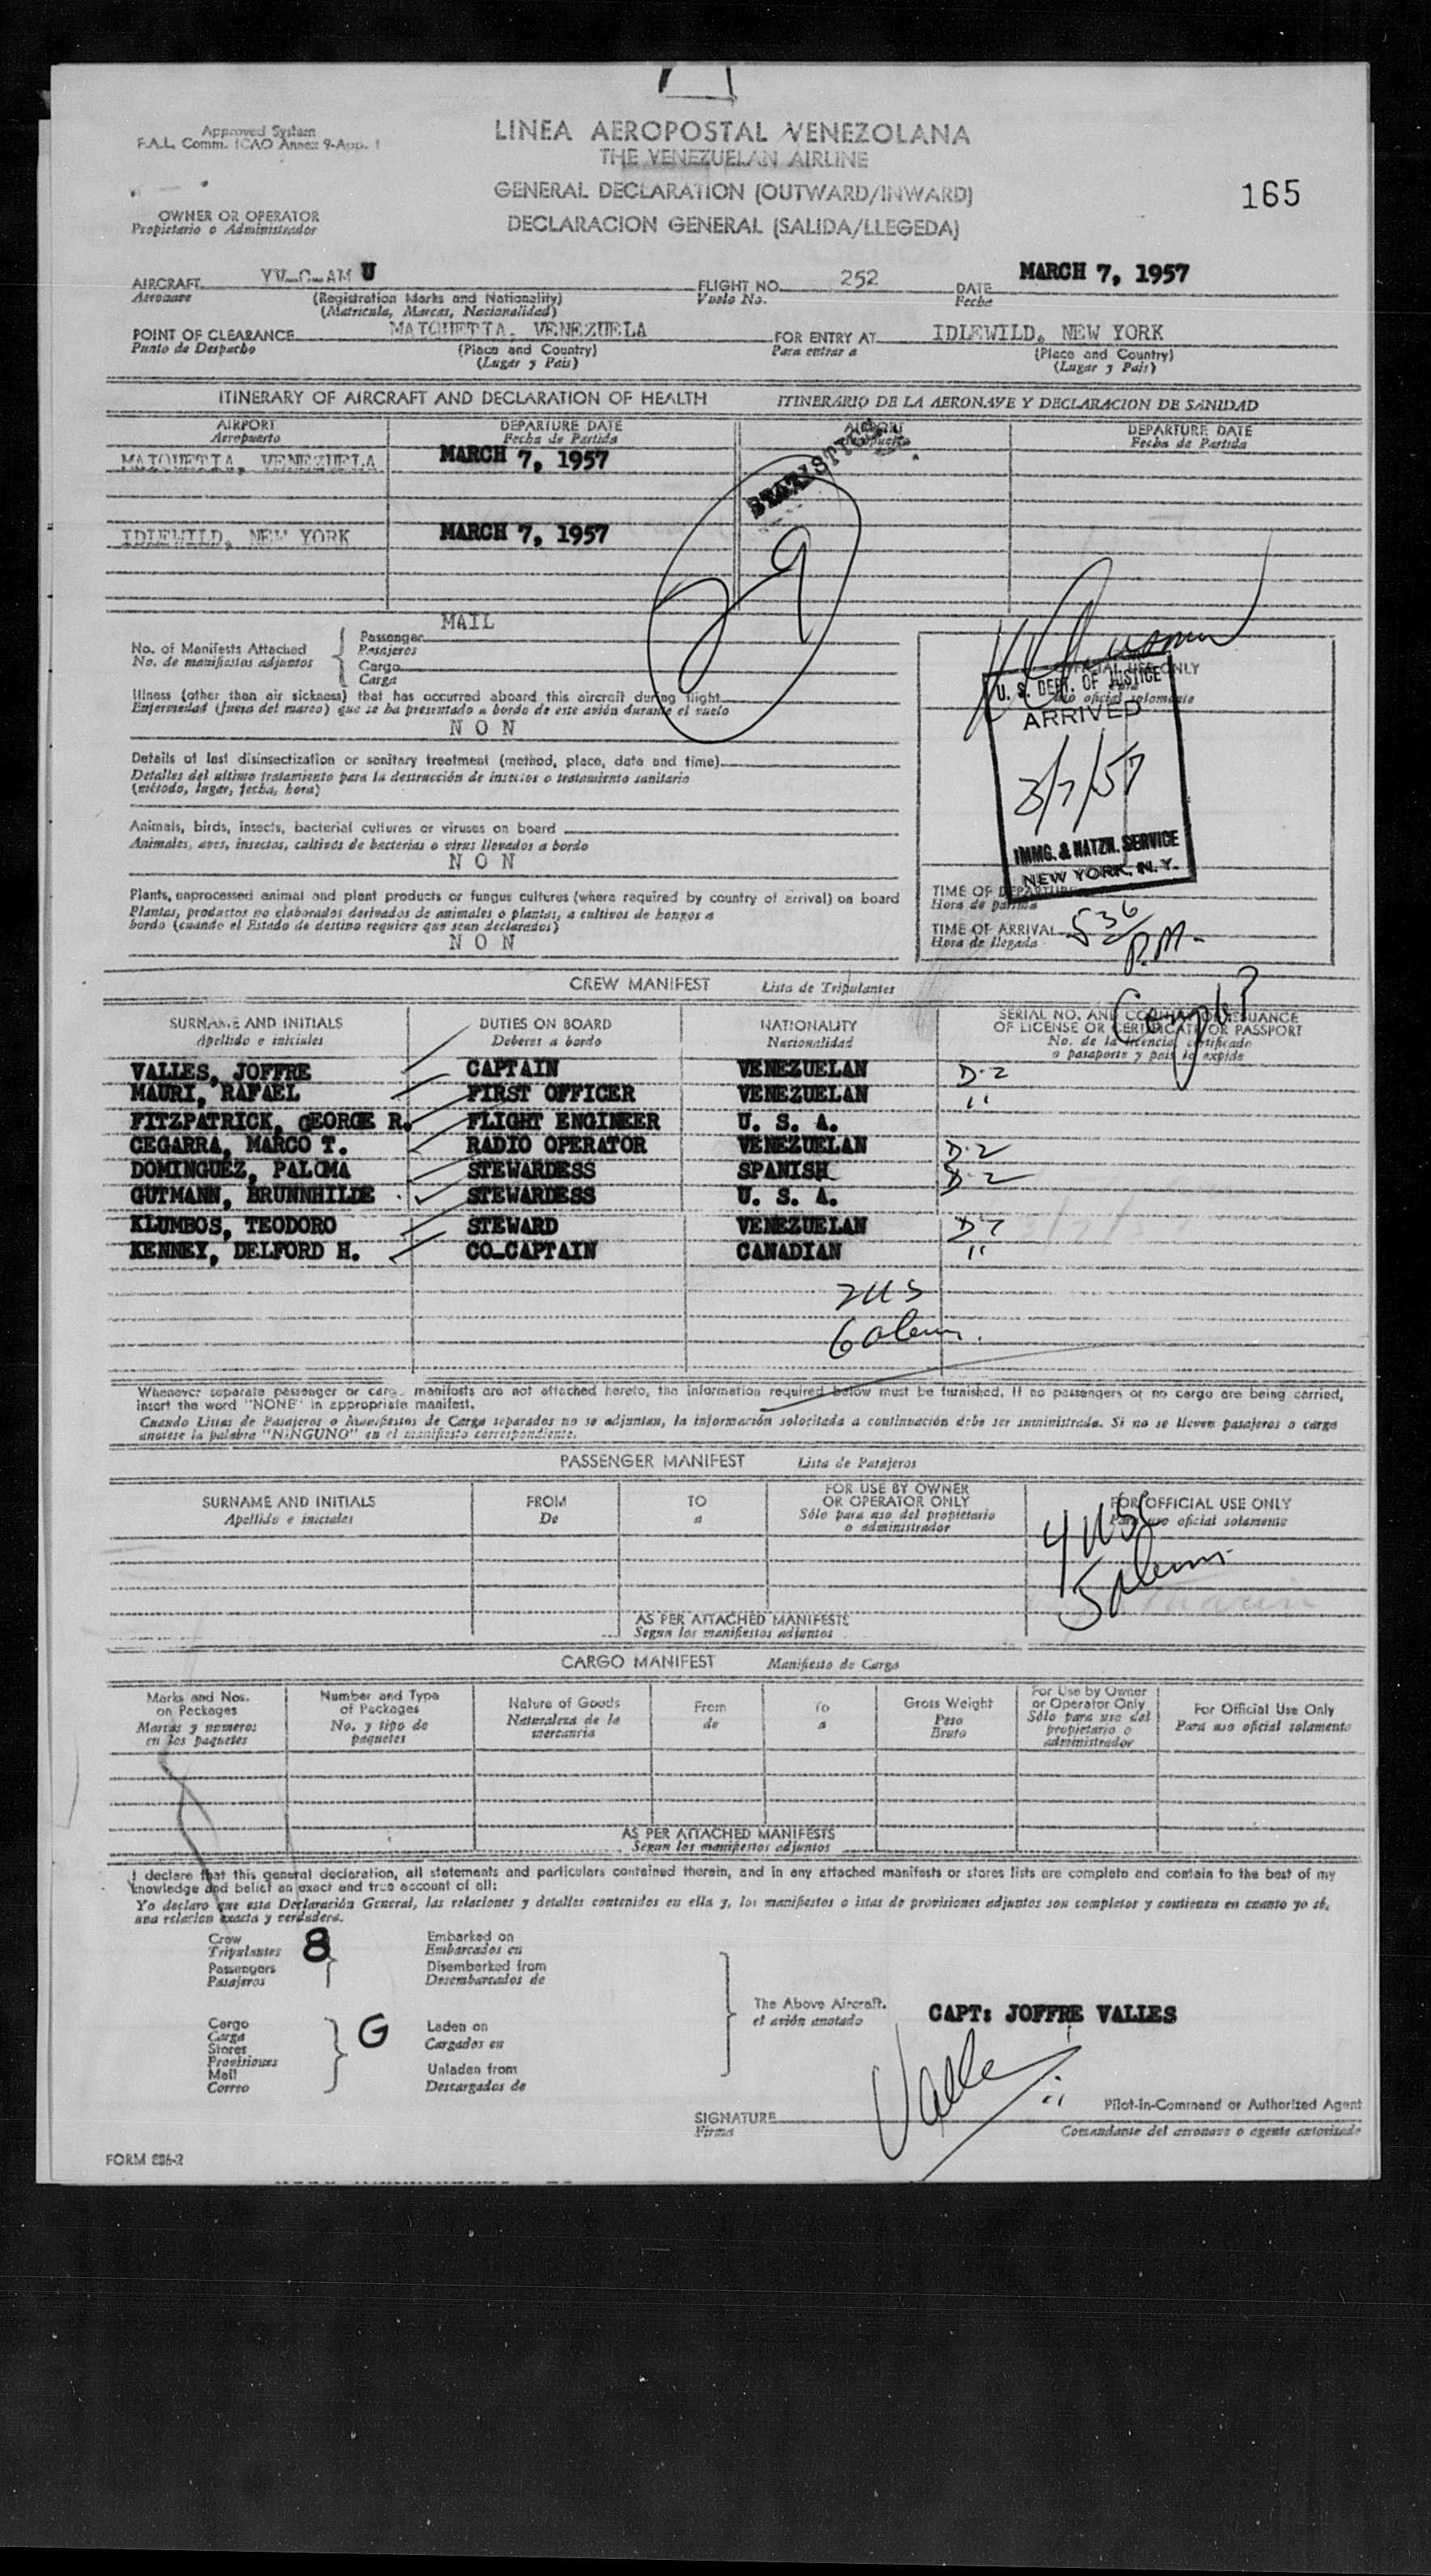 Approved System
F.A.L. Comm. ICAO Annex 9-App. 1
LINEA AEROPOSTAL VENEZOLANA
THE VENEZUELAN AIRLINE
GENERAL DECLARATION (OUTWARD/INWARD)
DECLARACION GENERAL (SALIDA/LLEGEDA)
165
OWNER OR OPERATOR
Propietario o Administrador
AIRCRAFT YV-C-AM U FLIGHT NO. 252 DATE MARCH 7, 1957
Aeronave (Registration Marks and Nationality) Vuelo No. Fecha
(Matricula, Marcas, Nacionalidad)
POINT OF CLEARANCE MAIQUETIA, VENEZUELA FOR ENTRY AT IDLEWILD, NEW YORK
Punto de Despacho (Place and Country) Para entrar a (Place and Country)
(Lugar y Pais) (Lugar y Pais)
ITINERARY OF AIRCRAFT AND DECLARATION OF HEALTH ITINERARIO DE LA AERONAVE Y DECLARACION DE SANIDAD
AIRPORT DEPARTURE DATE AIRPORT DEPARTURE DATE
Aeropuerto Fecha de Partida Aeropuerto Fecha de Partida
MAIQUETIA, VENEZUELA MARCH 7, 1957
IDLEWILD, NEW YORK MARCH 7, 1957
29
MAIL
No. of Manifests Attached Passenger
No. de manifiestos adjuntos Pasajeros
Cargo
Carga
Illness (other than air sickness) that has occurred aboard this aircraft during flight
Enfermedad (fuera del mareo) que se ha presentado a bordo de este avión durante el vuelo
N O N
Details of last disinsectization or sanitary treatment (method, place, date and time)
Detalles del ultimo tratamiento para la destrucción de insectos o tratamiento sanitario
(método, lugar, fecha, hora)
Animals, birds, insects, bacterial cultures or viruses on board
Animales, aves, insectos, cultivos de bacterias o virus llevados a bordo
N O N
Plants, unprocessed animal and plant products or fungus cultures (where required by country of arrival) on board
Plantas, productos no elaborados derivados de animales o plantas, a cultivos de hongos a
bordo (cuando el Estado de destino requiere que sean declarados)
N O N
OFFICIAL USE ONLY
uso oficial solamente
U. S. DEPT. OF JUSTICE
ARRIVED
3/7/57
IMMG. & NATZN. SERVICE
NEW YORK, N.Y.
TIME OF DEPARTURE
Hora de partida
TIME OF ARRIVAL 5 36 P.M.
Hora de llegada
CREW MANIFEST Lista de Tripulantes
SURNAME AND INITIALS DUTIES ON BOARD NATIONALITY SERIAL NO. AND COUNTRY OF ISSUANCE
Apellido e iniciales Deberes a bordo Nacionalidad OF LICENSE OR CERTIFICATE OR PASSPORT
No. de la licencia, certificado
o pasaporte y pais lo expide
VALLES, JOFFRE CAPTAIN VENEZUELAN D-2
MAURI, RAFAEL FIRST OFFICER VENEZUELAN "
FITZPATRICK, GEORGE R. FLIGHT ENGINEER U. S. A.
CEGARRA, MARCO T. RADIO OPERATOR VENEZUELAN D-2
DOMINGUEZ, PALOMA STEWARDESS SPANISH D-2
GUTMANN, BRUNNHILDE STEWARDESS U. S. A.
KLUMBOS, TEODORO STEWARD VENEZUELAN D-2
KENNEY, DELFORD H. CO-CAPTAIN CANADIAN "
2 US
6 aliens
Whenever separate passenger or cargo manifests are not attached hereto, the information required below must be furnished. If no passengers or no cargo are being carried,
insert the word "NONE" in appropriate manifest.
Cuando Listas de Pasajeros o Manifiestos de Carga separados no se adjuntan, la información solocitada a continuación debe ser suministrada. Si no se lleven pasajeros o carga
anotese la palabra "NINGUNO" en el manifiesto correspondiente.
PASSENGER MANIFEST Lista de Pasajeros
SURNAME AND INITIALS FROM TO FOR USE BY OWNER FOR OFFICIAL USE ONLY
Apellido e iniciales De a OR OPERATOR ONLY Para uso oficial solamente
Sólo para uso del propietario
o administrador
4 USC
5 aliens
AS PER ATTACHED MANIFESTS
Segun los manifiestos adjuntos
CARGO MANIFEST Manifiesto de Carga
Marks and Nos. Number and Type Nature of Goods From To Gross Weight For Use by Owner For Official Use Only
on Packages of Packages Naturaleza de la de a Peso or Operator Only Para uso oficial solamente
Marcas y numeros No. y tipo de mercancia Bruto Sólo para uso del
en los paquetes paquetes propietario o
administrador
AS PER ATTACHED MANIFESTS
Segun los manifiestos adjuntos
I declare that this general declaration, all statements and particulars contained therein, and in any attached manifests or stores lists are complete and contain to the best of my
knowledge and belief an exact and true account of all:
Yo declaro que esta Declaración General, las relaciones y detalles contenidos en ella y, los manifiestos o istas de provisiones adjuntos son completos y contienen en cuanto yo sé,
una relacion exacta y verdadera.
Crew 8 Embarked on
Tripulantes Embarcados en
Passengers Disembarked from
Pasajeros Desembarcados de
The Above Aircraft.
el avión anotado
CAPT: JOFFRE VALLES
Cargo G Laden on
Carga Cargados en
Stores
Provisiones
Mail Unladen from
Correo Descargados de
Valles
SIGNATURE Pilot-in-Command or Authorized Agent
Firma Comandante del aeronave o agente autorizado
FORM 886-2